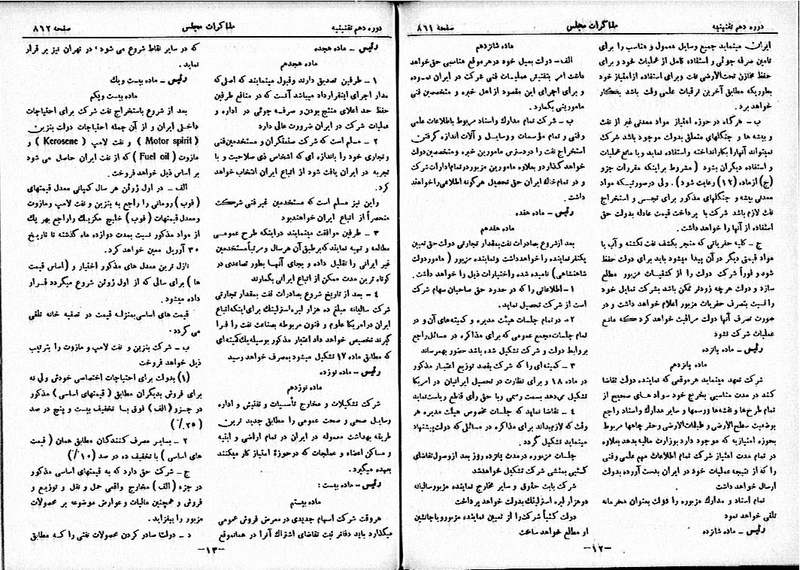 دوره دهم تقنینیه مذاکرات مجلس صفحه ۸۶۱
ایران مینماید جمیع وسایل معمول و مناسب را برای
تامین صرفه جوئی و استفاده کامل از عملیات خود و برای
حفظ مخازن تحت‌الارضی نفت و برای استفاده از امتیاز خود
بطوریکه مطابق آخرین ترقیات علمی وقت باشد بکار
خواهد برد.
ب - هرگاه در حوزه امتیاز مواد معدنی غیر از نفت
و بیشه ها و جنگلهای متعلق بدولت موجود باشد شرکت
نمیتواند آنها را بکار انداخته و استفاده نماید و یا مانع عملیات
و استفاده دیگران بشود (مشروط براینکه مقررات جزو
(ج) از ماده (۱۲) رعایت شود). ولی در صورتیکه مواد
معدنی بیشه و جنگلهای مذکور برای تجسس و استخراج
نفت لازم باشد شرکت با پرداخت قیمت عادله بدولت حق
استفاده از آنها را خواهد داشت.
ج - کلیه حفریاتی که منجر بکشف نفت نگشته و آب یا
مواد قیمتی دیگر در آن پیدا میشود باید برای دولت حفظ
شود و فوراً شرکت دولت را از کشفیات مزبور مطلع
سازد و دولت هرچه زودتر ممکن باشد بشرکت تمایل خود
را نسبت بتصرف حفریات مزبور اعلام خواهد داشت و در
صورت تصرف آنها دولت مراقبت خواهد کرد که مانع
عملیات شرکت نشود
رئیس - ماده پانزده
ماده پانزدهم
شرکت تعهد مینماید هر موقعی که نماینده دولت تقاضا
کند در مدت مناسبی بخرج خود سواد های صحیح از
تمام طرح‌ها و نقشه‌ها و رسمها و سایر مدارک واسناد راجع
بوضعیت سطح‌الارض و طبقات‌الارض وحفر چاهها مربوط
بحوزه امتیازیه که موجود دارد بوزارت مالیه بدهد بعلاوه
در تمام مدت امتیاز شرکت تمام اطلاعات مهم علمی و فنی
را که از نتیجه عملیات خود در ایران بدست آورده بدولت
ارسال خواهد داشت
تمام اسناد و مدارک مزبوره را دولت بعنوان محرمانه
تلقی خواهد نمود
رئیس - ماده شانزده
ماده شانزدهم
الف- دولت بمیل خود در هر موقع مناسبی حق خواهد
داشت امر بتفتیش عملیات فنی شرکت در ایران نموده
و برای اجرای این مقصود از اهل خبره و متخصصین فنی
مامورینی بگمارد.
ب - شرکت تمام مدارک و اسناد مربوط باطلاعات علمی
و فنی و تمام مؤسسات و وسایل و آلات اندازه گرفتن
استخراج نفت را در دسترس مامورین خبره و متخصصین دولت
خواهد گذاشت و بعلاوه مامورین مزبور در تمام ادارات شرکت
و در تمام خاک ایران حق تحصیل هرگونه اطلاعی را خواهند
داشت.
رئیس - ماده هفده
ماده هفدهم
بعد از شروع بصادرات نفت بمقدار تجارتی دولت حق تعیین
یکنفر نماینده را خواهد داشت و نماینده مزبور (مامور دولت
شاهنشاهی) نامیده شده و اختیارات ذیل را خواهد داشت.
۱ - اطلاعاتی را که در حدود حق صاحبان سهام شرکت
است از شرکت تحصیل نماید.
۲ - در تمام جلسات هیئت مدیره و کمیته‌های آن و در
تمام جلسات مجمع عمومی که برای مذاکره در مسائل راجع
بروابط دولت و شرکت تشکیل شده باشد حضور بهمرساند
۳ - کمیته‌ای را که شرکت بقصد توزیع اعتبار مذکور
در ماده ۱۸ و برای نظارت در تحصیل ایرانیان در امریکا
تشکیل میدهد بسمت رسمی و با حق رأی قاطع ریاست نماید
۴ - تقاضا نماید که جلسات مخصوص هیئت مدیره هر
وقت که لازم بداند برای مذاکره در مسائلی که دولت پیشنهاد
مینماید تشکیل گردد.
جلسات مزبوره در مدت پانزده روز بعد از وصول تقاضای
کتبی بمنشی شرکت تشکیل خواهد شد
شرکت بابت حقوق و سایر مخارج نماینده مزبور سالیانه
دو هزار لیره استرلینگ بدولت خواهد پرداخت
دولت کتباً شرکت را از تعیین نماینده مزبور و یا جانشین
او مطلع خواهد ساخت
-۱۲-
دوره دهم تقنینیه مذاکرات مجلس صفحه ۸۶۲
رئیس - ماده هجده
ماده هجدهم
۱ - طرفین تصدیق دارند وقبول مینمایند که اصلی که
مدار اجرای این قرارداد میباشد آنست که در منافع طرفین
حفظ حد اعلای منتج بودن و صرفه جوئی در اداره و
عملیات شرکت در ایران ضرورت عالی دارد
۲ - مسلم است که شرکت صنعتگران و مستخدمین فنی
و تجاری خود را باندازه ای که اشخاص ذی صلاحیت و با
تجربه در ایران یافت شود از اتباع ایران انتخاب خواهد
کرد.
واین نیز مسلم است که مستخدمین غیر فنی شرکت
منحصراً از اتباع ایران خواهند بود
۳ - طرفین موافقت مینمایند در اینکه طرح عمومی
مطالعه و تهیه نمایند که بر طبق آن هر سال و مرتباً مستخدمین
غیر ایرانی را تقلیل داده و بجای آنها بطور تصاعدی در
کوتاه ترین مدت ممکن از اتباع ایرانی بگمارند
۴ - بعد از تاریخ شروع بصادرات نفت بمقدار تجارتی
شرکت سالیانه مبلغ ده هزار لیره استرلینگ برای اینکه اتباع
ایران در امریکا علوم و فنون مربوطه بصناعت نفت را فرا
گیرند تخصیص خواهد داد اعتبار مذکور بوسیله یک کمیته‌ای
که مطابق ماده ۱۷ تشکیل میشود بمصرف خواهد رسید
رئیس - ماده نوزده
ماده نوزدهم
شرکت تشکیلات و مخارج تأسیسات و تفتیش و اداره
وسایل صحی و صحت عمومی را مطابق جدید ترین
طریقه بهداشت معموله در ایران در تمام اراضی و ابنیه
و مساکن اعضاء و عملجات که در حوزهٔ امتیاز کار میکنند
بعهده میگیرد.
رئیس - ماده بیست:
ماده بیستم
هر وقت شرکت اسهام جدیدی در معرض فروش عمومی
میگذارد باید دفاتر ثبت تقاضای اشتراک آنرا در همان موقع
که در سایر نقاط شروع می شود: در تهران نیز بر قرار
نماید.
رئیس - ماده بیست ویک
ماده بیست و یکم
بعد از شروع باستخراج نفت شرکت برای احتیاجات
داخلی ایران و از آن جمله احتیاجات دولت بنزین
(Motor spirit) و نفت لامپ (Kerosene) و
مازوت (Fuel oil) که از نفت ایران حاصل می شود
بر اساس ذیل خواهد فروخت.
الف - در اول ژوئن هر سال کمپانی معدل قیمتهای
(فوب) رومانی را راجع به بنزین و نفت لامپ و مازوت
و معدل قیمتهات (فوب) خلیج مکزیک را راجع بهر یک
از مواد مذکور نسبت بمدت دوازده ماه گذشته تا تاریخ
۳۰ آوریل معین خواهد کرد.
نازل ترین معدل های مذکور اختیار و (اساس قیمت
ها) برای سالی که از اول ژوئن شروع میگردد قرار
داده میشود.
قیمت های اساسی بمنزله قیمت در تصفیه خانه تلقی
می گردد.
ب - شرکت بنزین و نفت لامپ و مازوت را بترتیب
ذیل خواهد فروخت
(۱) بدولت برای احتیاجات اختصاصی خودش ولی نه
برای فروش بدیگران مطابق (قیمتهای اساسی) مذکور
در جزو (الف) فوق با تخفیف بیست و پنج در صد
(۲۵٪)
۲ - بسایر مصرف کنندگان مطابق همان (قیمت
های اساسی) با تخفیف ده در صد (۱۰٪)
ج - شرکت حق دارد که به قیمتهای اساسی مذکور
در جزء (الف) مخارج واقعی حمل و نقل و توزیع و
فروش و همچنین مالیات و عوارض موضوعه بر محصولات
مزبور را بیفزاید.
د - دولت صادر کردن محصولات نفتی را که مطابق
-۱۳-